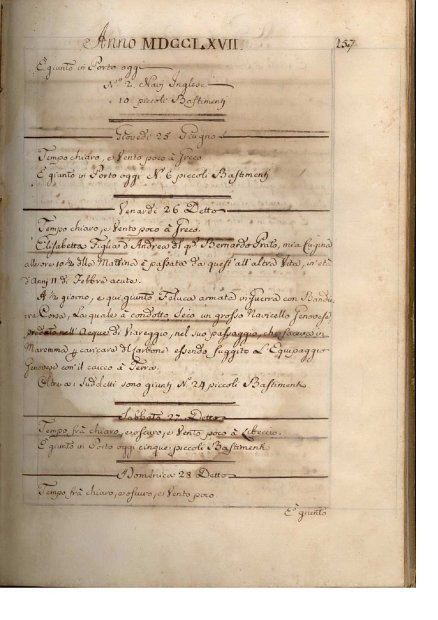 Anno MDCCLXVII.
157
E' giunto in Porto oggi
N.º 2. Navi Inglesi
10 piccoli Bastimenti
Giovedì 25 Giugno
Tempo chiaro, e Vento poco à Greco
E giunto in Porto oggi N.º 6 piccoli Bastimenti
Venardì 26 Detto
Tempo chiaro, e Vento poco à Greco.
Elisabetta Figlia d'Andrea di q.m Bernardo Prato, mia Cugina
alle ore 10½ della Mattina è passata da quest'all'altra Vita, in età
d'Anni 11 di Febbre acuta.
A ½ giorno, e qui giunto Faluca armata in Guerra con Bandie,,
ra Corsa, La quale à condotto Seco un grosso Navicello Genovese
predato nell'Acque di Viareggio, nel suo passaggio, che faceva in
Maremma p caricare di Carbone essendo fuggito L'Equipaggio
Genovese con il caicco à Terra.
Oltre a' Suddetti sono giunti N.º 24 piccoli Bastimenti
Sabbato 27 Detto
Tempo frà chiaro, e oscuro, e Vento poco à Libeccio.
E giunto in Porto oggi cinque piccoli Bastimenti
Domenica 28 Detto
Tempo frà chiaro, e oscuro, e Vento poco
E' giunto